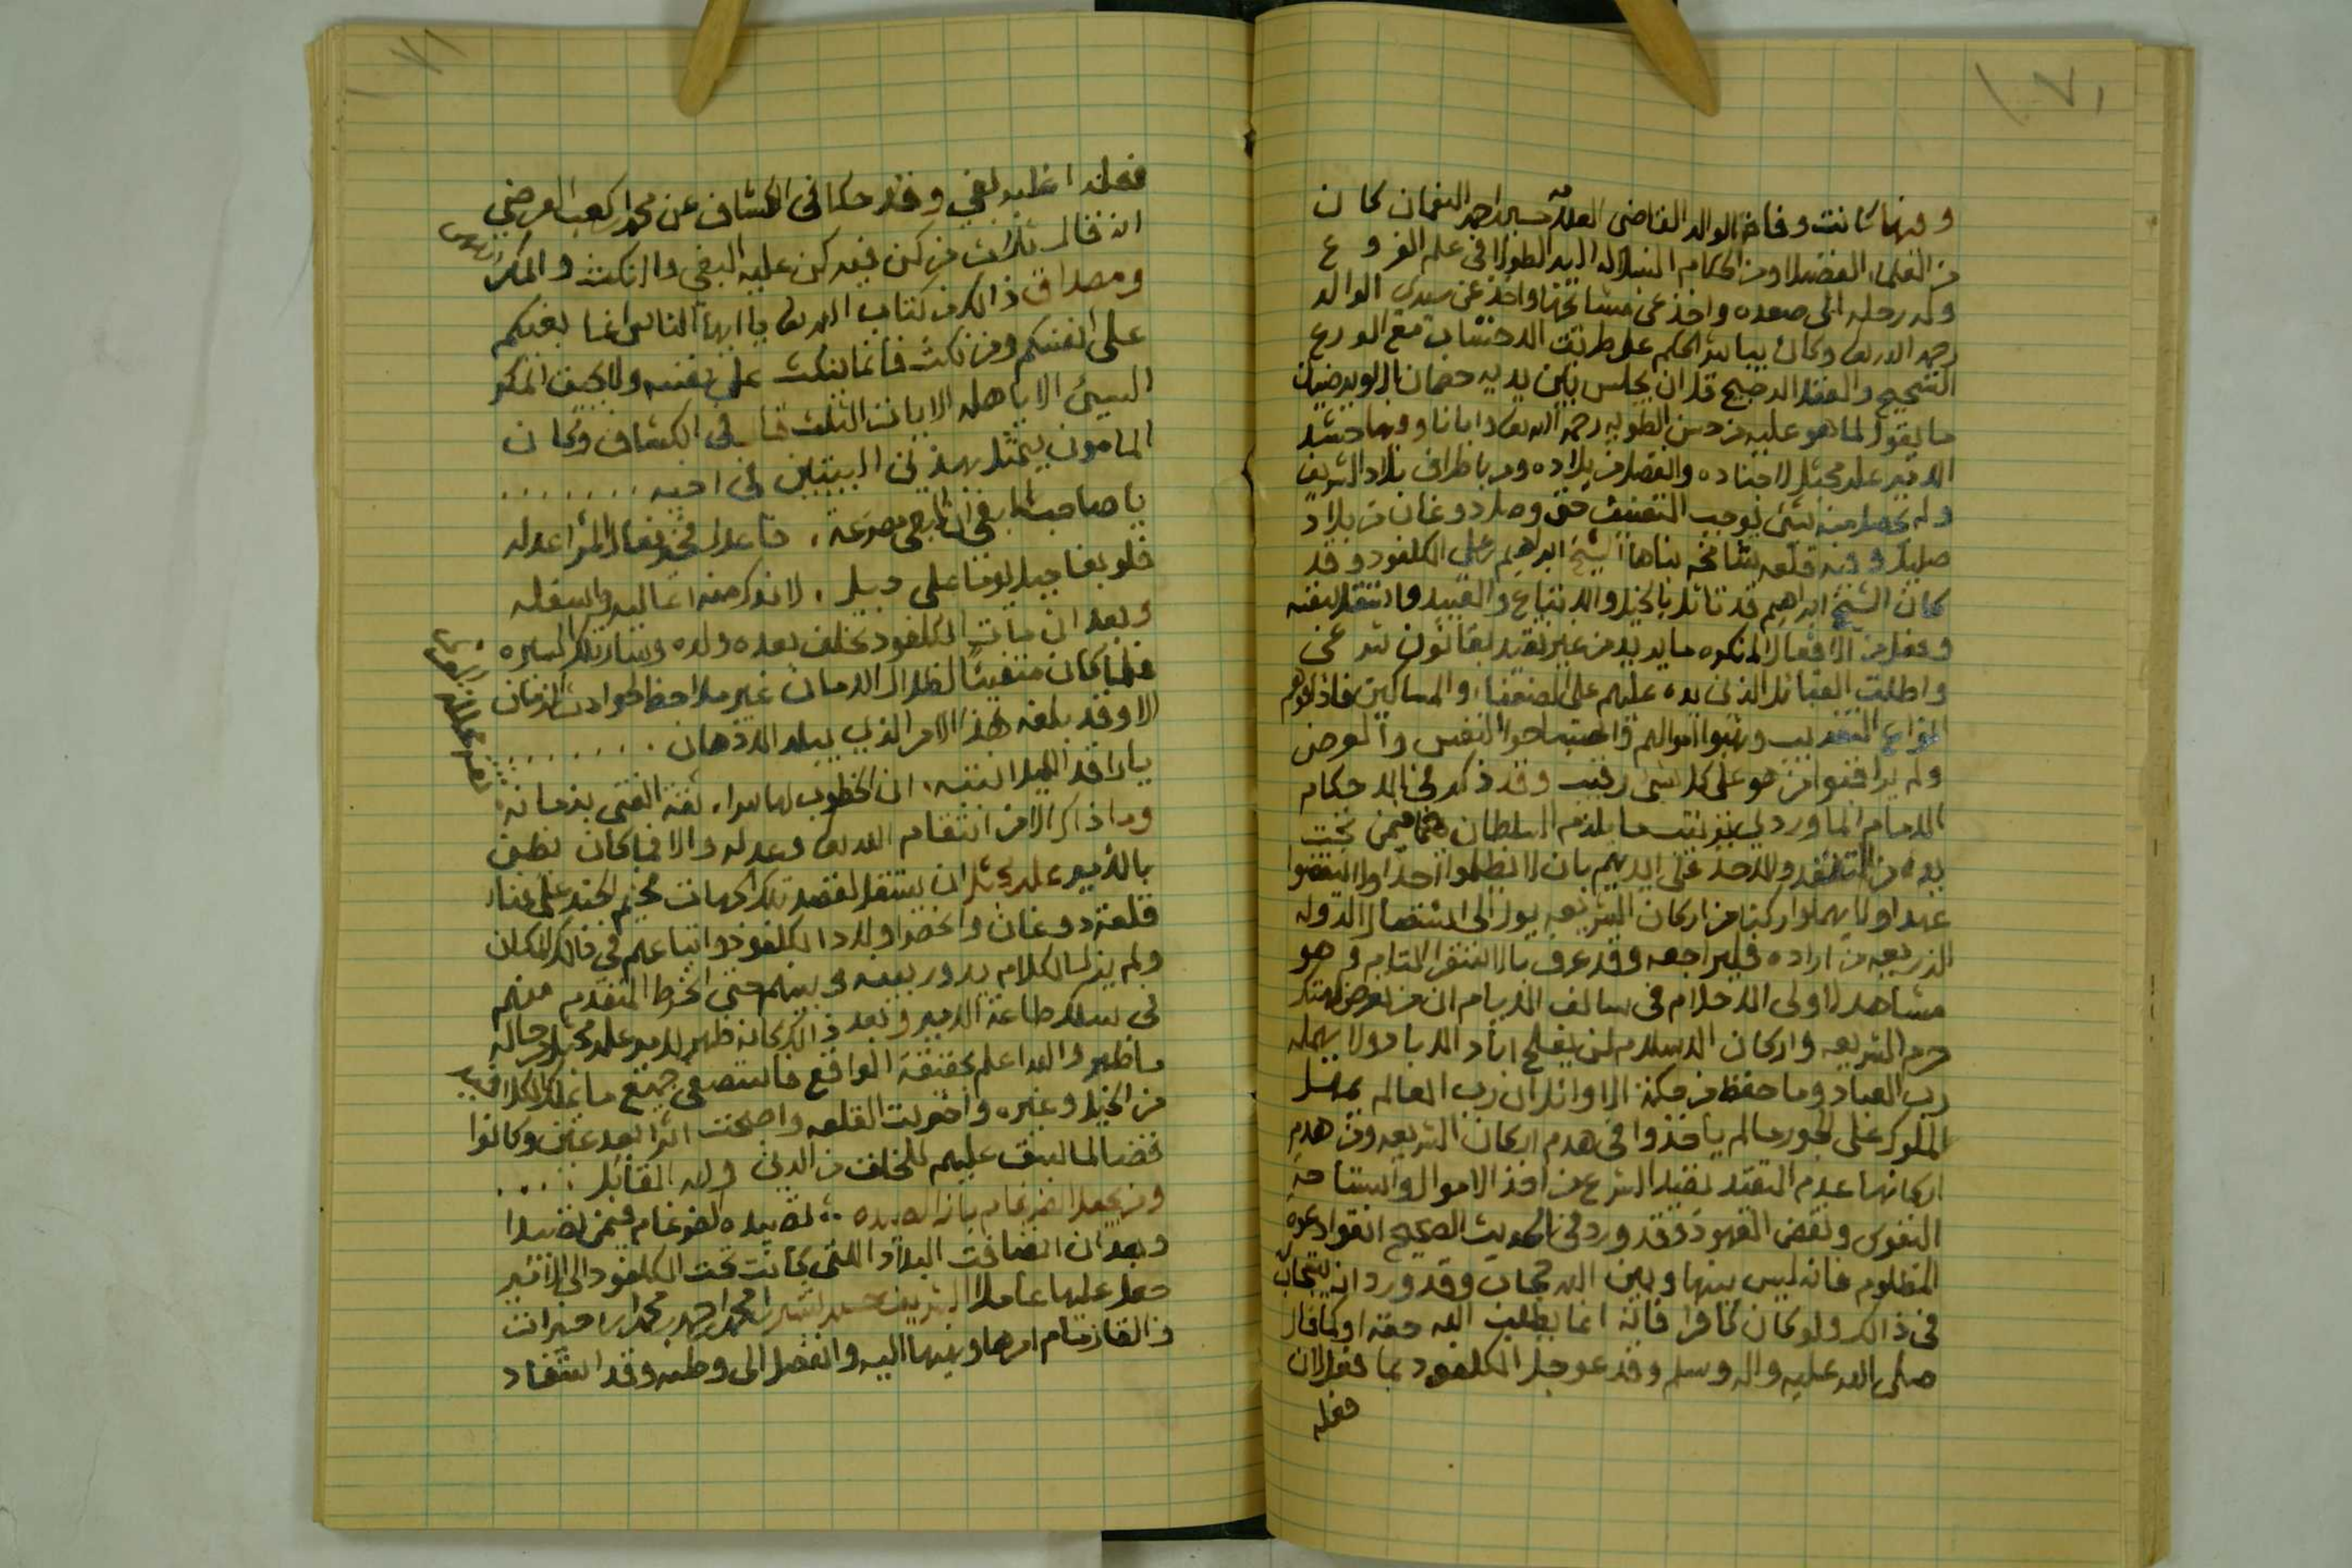 ٧٠
وفيها كانت وفاة الوالد القاضي العلامة احمد النعمان كان
من العلماء الفضلا ومن الحكام النبلا له اليد الطولا في علم الفروع
وله رحله الى صعده واخذ عن مشائخها واخذ عن سيدي الوالد
رحمه الله تعالى وكان يباشر الحكم على طريقة الاحتساب مع الورع
الشحيح والعقل الرجيح قل ان يجلس بين يديه خصمان الا ويرضيان
ما يقول لما هو عليه من حسن الطويه رحمه الله تعالى وايانا وفيها حشد
الامير علي مجثل لاجناده وانفصل من بلاده ومر باطراف بلاد الشريف
ولم يحصل منه شيء يوجب التعنيف حتى وصل دوغان من بلاد
صليل وفيه قلعه شامخه بناها الشيخ ابراهيم علي الكلفود وقد
كان الشيخ ابراهيم قد تاثل بالخيل والاتباع والعبيد واستقل بنفسه
وفعل من الافعال المنكره ما يريد من غير تقيد بقانون شرعي
واطلق القبائل الذين يده عليهم على الضعفاء والمساكين فاذاقوهم
انواع التعذيب ونهبوا اموالهم واستباحوا النفس والعرض
ولم يراقبوا من هو على كل شي رقيب وقد ذكر في الاحكام
الامام الماوردي ما يلزم السلطان فيمن تحت
يده من التفقد والاخذ على ايديهم بان لا يظلموا احدا ولا ينقضوا
عهدا ولا يهملوا ركنا من اركان الشريعه يول الى استئصال الدوله
الذريعه من اراده فليراجعه وقد عرف بالاستقرا التام وهو
مشاهد لاولى الاحلام في سالف الايام ان من تعرض لهتك
حرم الشريعه واركان الاسلام لن يفلح ابد الاباد ولا يهمله
رب العباد وما حفظ من حكمة الاوائل ان رب العالم يمهل
الملوك على الجور مالم ياخذوا في هدم اركان الشريعه ومن هدم
اركانها عدم التقيد بقيد الشرع من اخذ الاموال واستباحة
النفوس ونقض العهود وقد ورد في الحديث الصحيح اتقوا دعوه
المظلوم فانه ليس بينها وبين الله حجاب وقد ورد انه يستجاب
في ذالك ولو كان كافرا فانه انما يطلب الله حقه او كما قال
صلى الله عليه واله وسلم وقد عوجل الكلفود بما فعل لان
فعله
٧١
فعله اغلبه بغي وقد حكا في الكشاف عن محمد بن كعب القرضي
انه قال ثلاث من كن فيه كن عليه البغي والنكث والمكر
ومصداق ذالك من كتاب الله تعالى يا ايها الناس انما بغيكم
على انفسكم ومن نكث فانما ينكث على نفسه ولا يحيق المكر
السيئ الا باهله الايات الثلث قال في الكشاف وكان
المامون يتمثل بهذين البيتين في اخيه .......
يا صاحب البغي ان البغي مصرعة . فاعدل فخير فعال المرا عدله
فلو بغا جبل يوما على جبل . لاندك منه اعاليه واسفله
وبعد ان مات الكلفود تخلف بعده ولده وسار تلك السيره
فلما كان متفيئا لظلال الامان غير ملاحظ لحوادث الزمان
الا وقد بلغه هذا الامر الذي يبلد الاذهان .......
يا راقد الليل انتبه . ان الخطوب لها سرا . ثقة الفتى بزمانه
وما ذاك الا من انتقام الله تعالى وعدله والا فما كان يظن
بالامير علي مجثل ان يستقل لقصد تلك الجهات مخيم الجند على فناء
قلعة دوغان واحضر اولاد الكلفود واتباعهم في ذالك المكان
ولم يزل الكلام يدور بينه وبينهم حتى انخرط المتقدم منهم
في سلك طاعة الامير وبعد ذالك كانه ظهر للامير علي مجثل من حاله
ما ظهر والله اعلم بحقيقة الواقع فاستصفى جميع ما يملك الكلافيد
من الخيل وغيره واخربت القلعه واصبحت اثرا بعد عين وكانوا
قضا لما سبق عليهم للخلق من الدين ولله القائل ....
ومن يجعل الضرغام بازا لصيده . تصيده الضرغام فيمن تصيدا
وبعد ان انضافت البلاد اللتي كانت تحت الكلفود الى الامير
جعل عليها عاملا الشريف
والقا زمام امرها ونهيها اليه وانفصل الى وطنه وقد استفاد